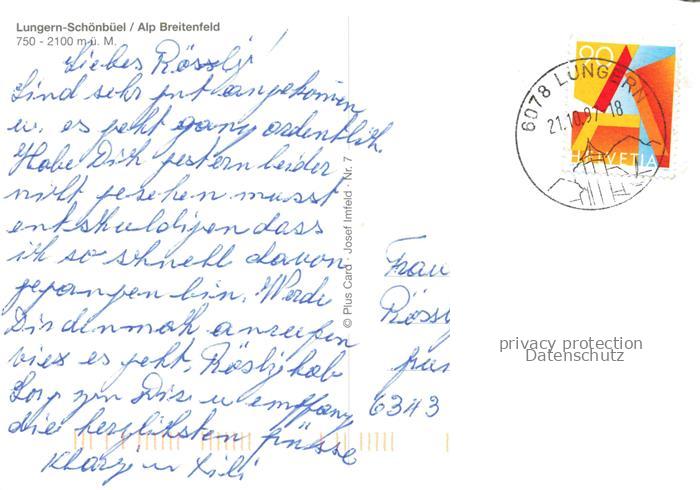 Lungern-Schönbüel / Alp Breitenfeld
750 - 2100 m ü. M.
Liebes Rössly!
Sind sehr gut angekommen
u. es geht ganz ordentlich.
Habe Dich gestern leider
nicht gesehen musst
entschuldigen dass
ich so schnell davon
gegangen bin. Werde
Dir dennoch anrufen
wies es geht. Rösly hab
Sorg zun Dir u empfang
die herzlichsten Grüsse
u
© Plus Card · Josef Imfeld · Nr. 7
90
HELVETIA
6078 LUNGERN
21.10.97-18
Frau
Rössy
6343
privacy protection
Datenschutz